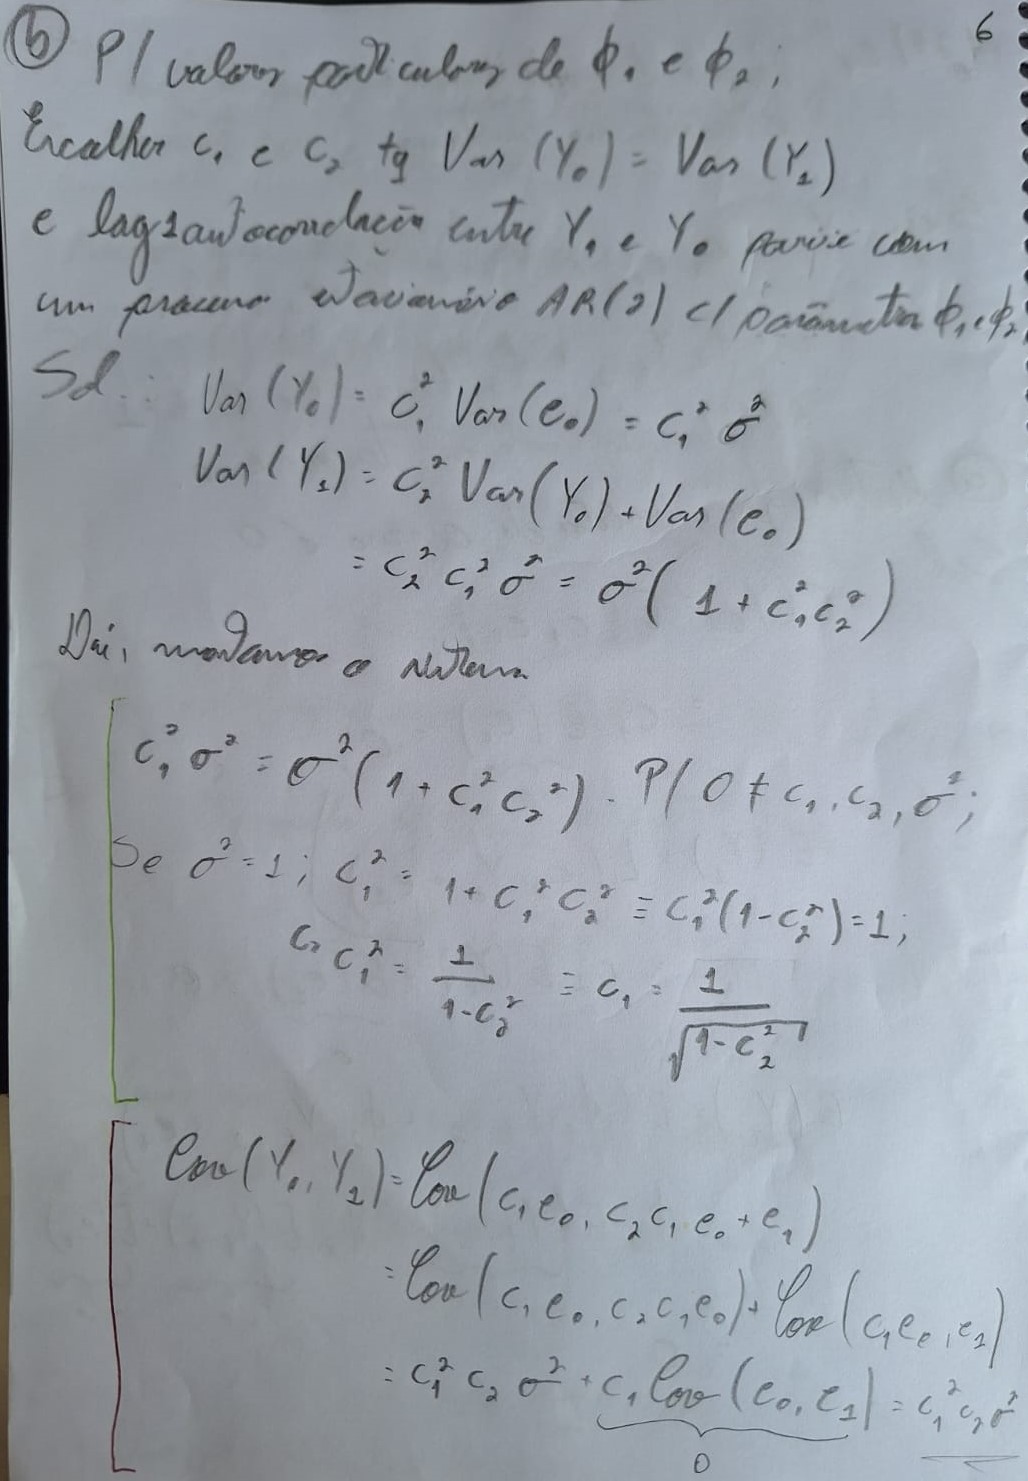 6
(b) P/ valores particulares de ϕ₁ e ϕ₂,
Escolher c₁ e c₂ tq Var (Y₀) = Var (Y₁)
e lag 1 autocorrelação entre Y₁ e Y₀ parece com
um processo estacionário AR(2) c/ parâmetros ϕ₁ e ϕ₂
Sol.: Var (Y₀) = c₁² Var(e₀) = c₁² σ²
Var (Y₁) = c₂² Var(Y₀) + Var(e₀)
= c₂² c₁² σ² = σ²( 1 + c₁²c₂²)
Daí, montamos o sistema
c₁² σ² = σ²(1 + c₁² c₂²). P/ 0 ≠ c₁, c₂, σ²;
Se σ² = 1; c₁² = 1 + c₁² c₂² ≡ c₁²(1-c₂²) = 1;
c₁² = 1/(1-c₂²) ≡ c₁ = 1/√(1-c₂²)
Cov(Y₀, Y₁) = Cov(c₁e₀, c₂c₁e₀ + e₁)
= Cov(c₁e₀, c₂c₁e₀) + Cov(c₁e₀, e₁)
= c₁² c₂ σ² + c₁ Cov(e₀, e₁) = c₁² c₂ σ²
0